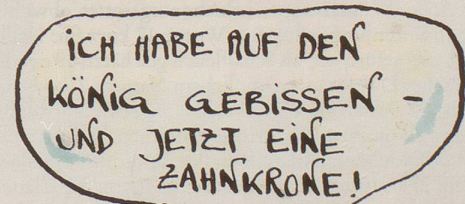 ICH HABE AUF DEN
KÖNIG GEBISSEN -
UND JETZT EINE
ZAHNKRONE!